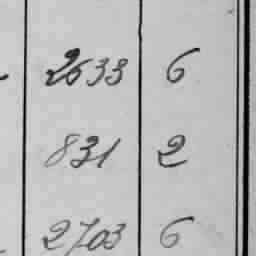 2633 6
831 2
2703 6